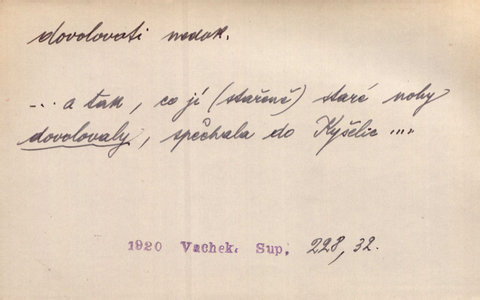 dovolovati nedok.
... a tak, co jí (stařeně) staré nohy
dovolovaly, spěchala do Kyšelic ....
1920 Vachek. Sup, 228, 32.